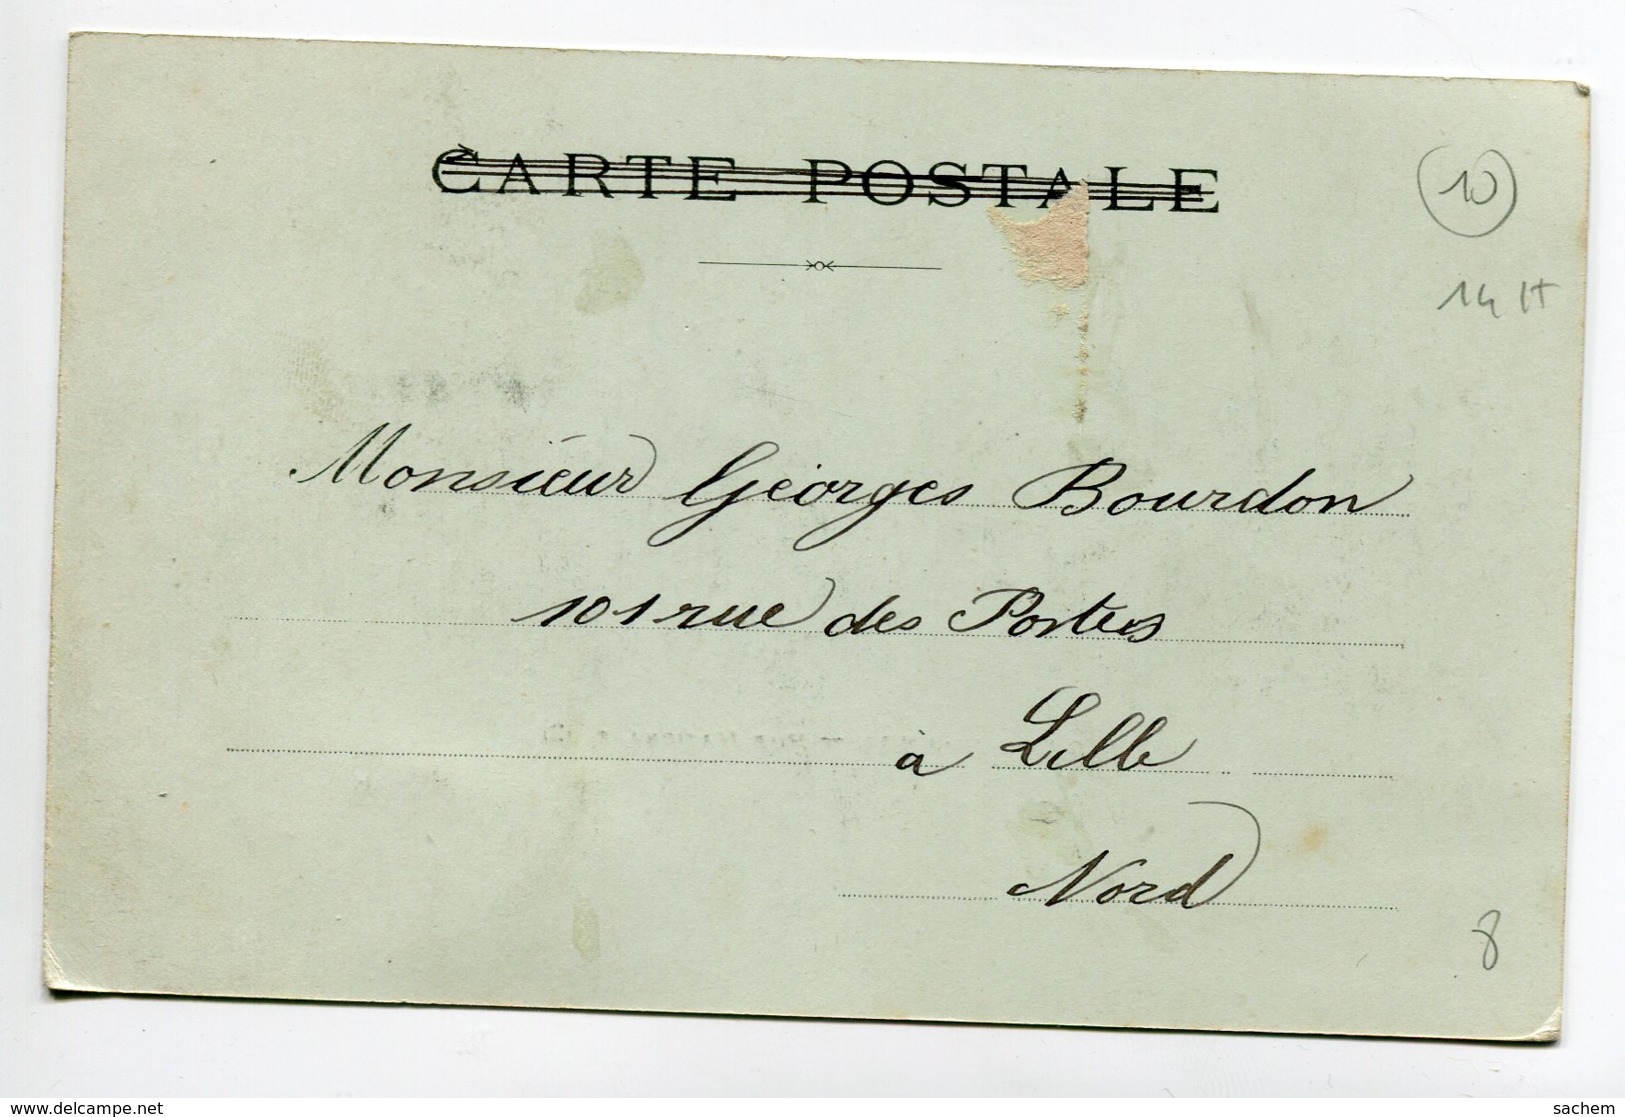 CARTE POSTALE
10
14 H
Monsieur Georges Bourdon
101 rue des Postes
à Lille
Nord
8
www.delcampe.net
sachem